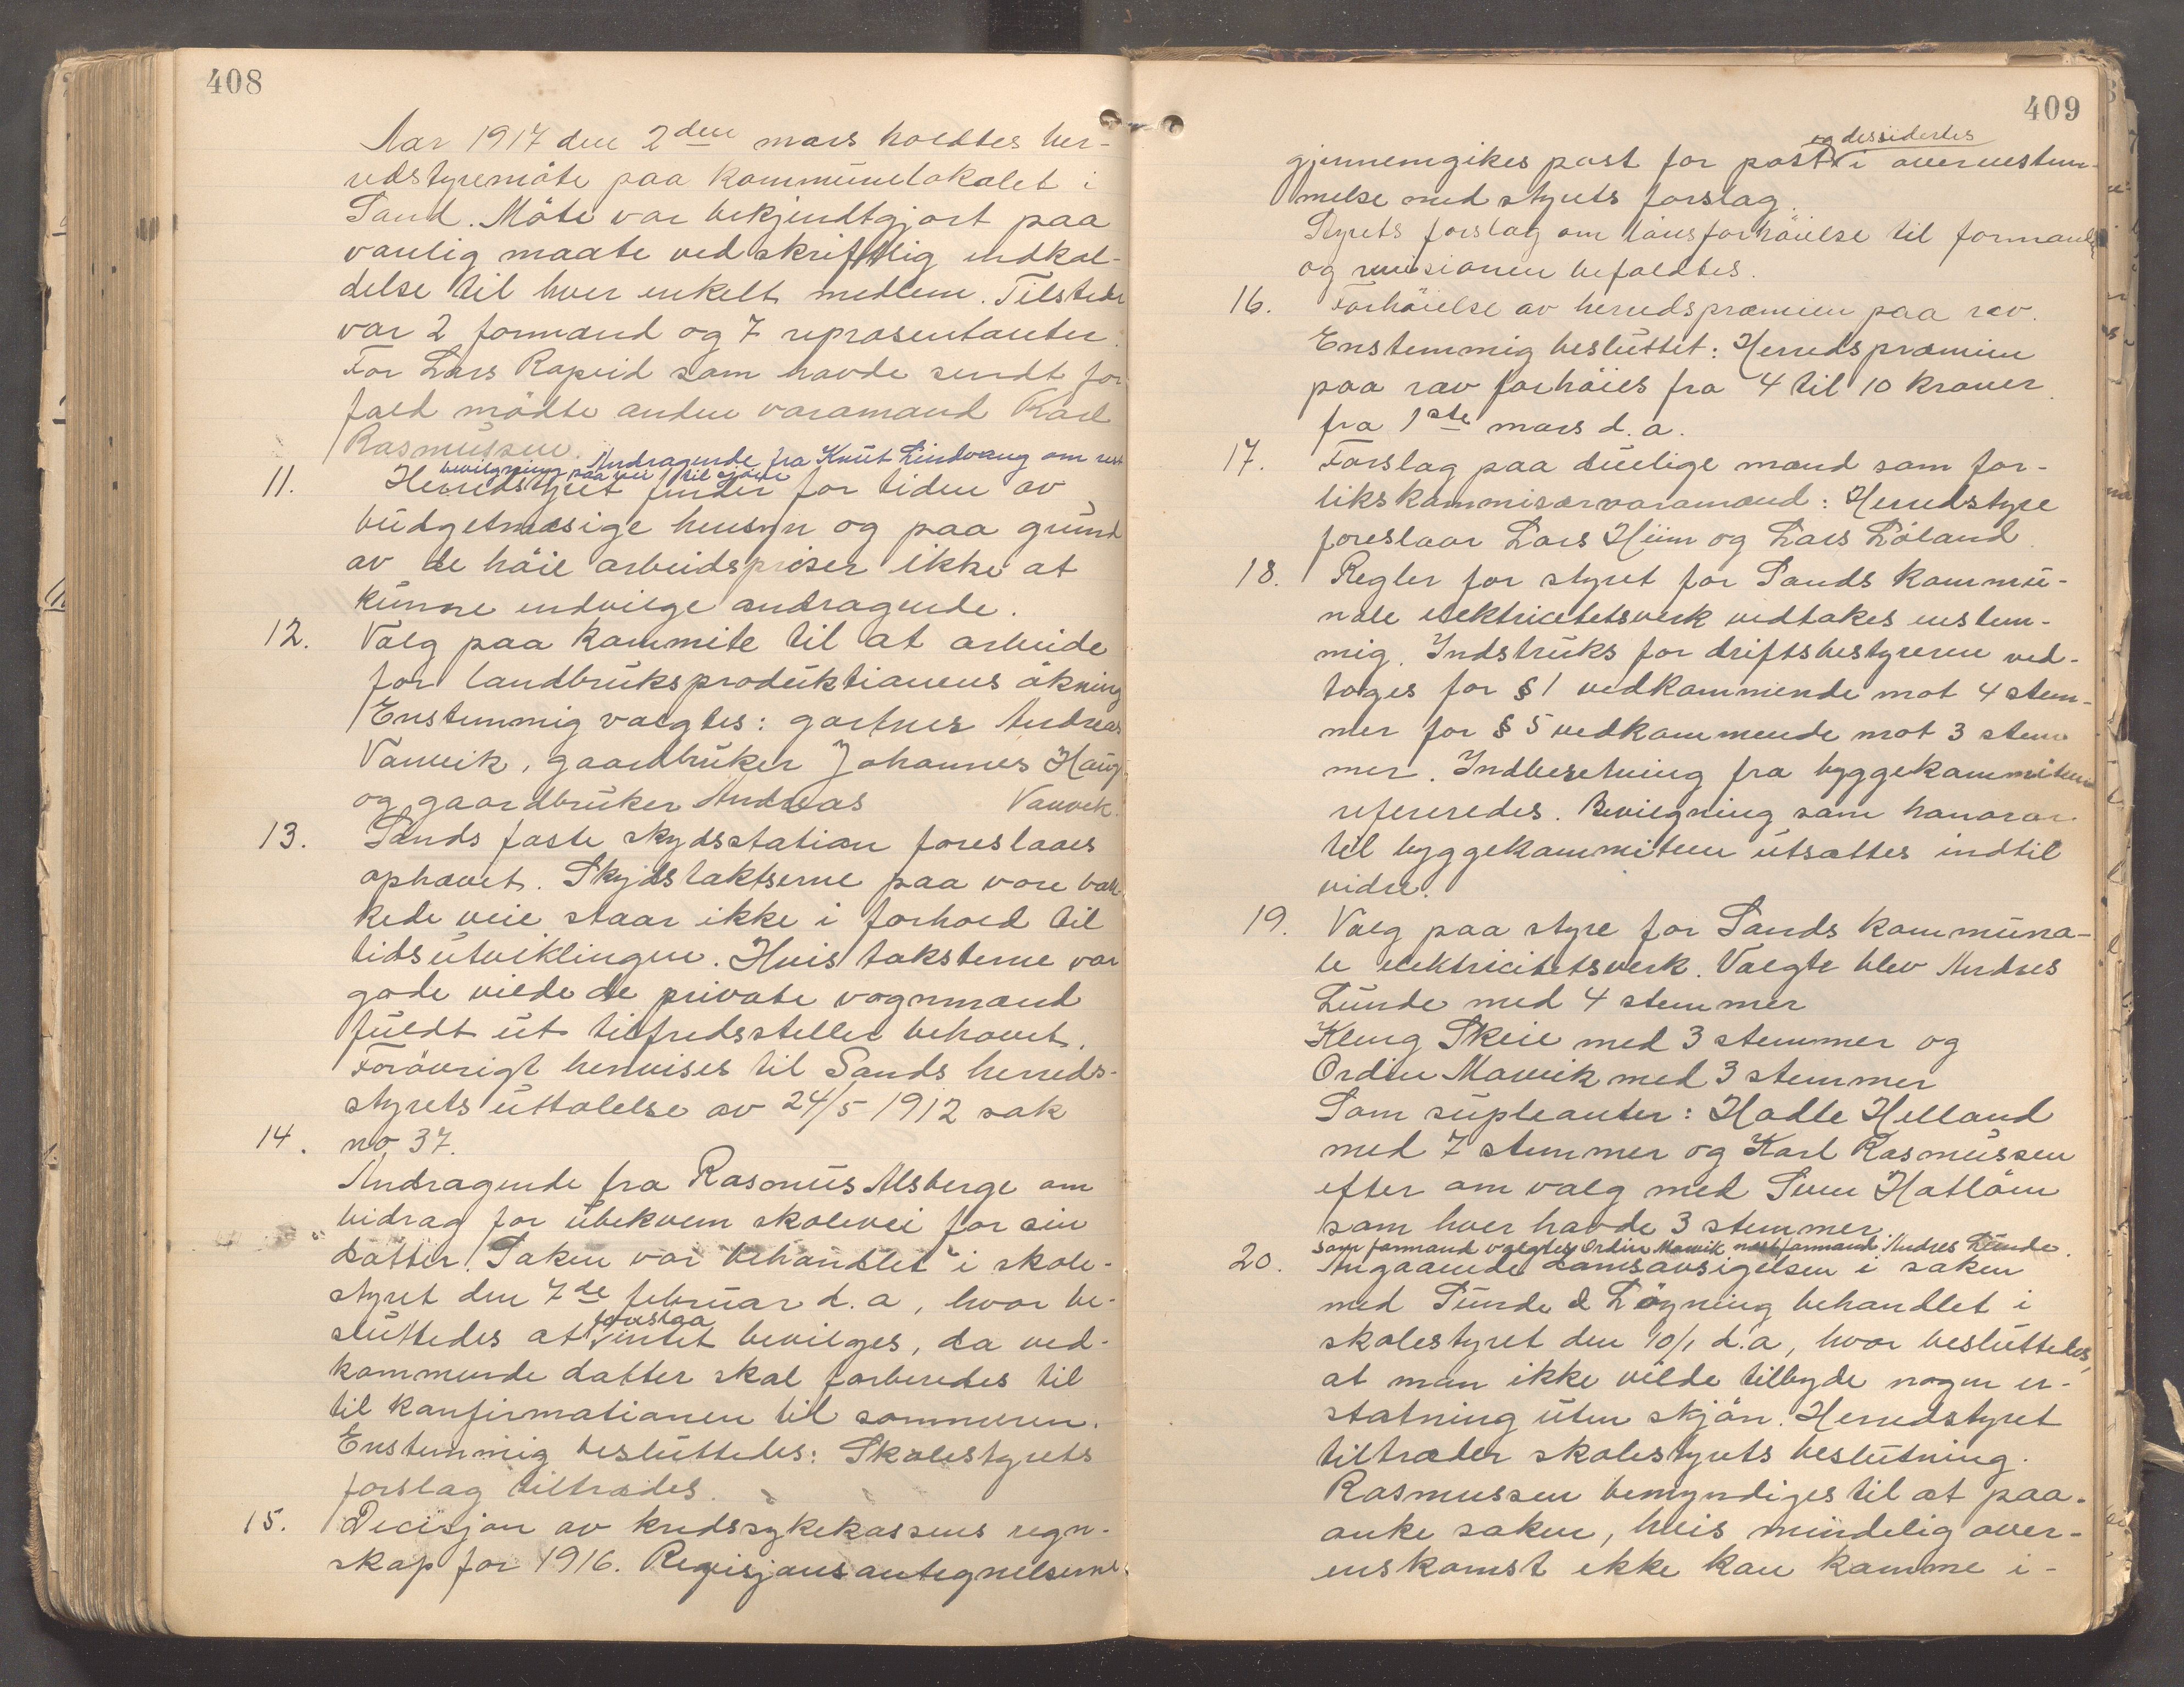 408
Aar 1917 den 2den mars holdtes her-
redstyremöte paa kommunelokalet i
Sand. Möte var bekjendtgjort paa
vanlig maate ved skriftlig indkal-
delse til hver enkelt medlem. Tilstede
var 2 formænd og 7 repræsentanter.
For Lars Rapeid som havde sendt for
fald mödte anden varamand Karl
Rasmussen. Andragende fra Knut Lindvang om
bevilgning paa vei til sjöen
11. Herredstyret finder for tiden av
budgetmæsige hensyn og paa grund
av de höie arbeidspriser ikke at
kunne indvilge andragende.
12. Valg paa kommite til at arbeide
for landbruksproduktionens ökning
Enstemmig valgtes: gartner Andreas
Vanvik, gaardbruker Johannes Haug
og gaardbruker Andreas Vanvik.
13. Sands faste skydsstation foreslaaes
ophævet. Skydstaktserne paa vore bak-
kede veie staar ikke i forhold til
tidsutviklingen. Hvis taksterne var
gode vilde de private vognmænd
fuldt ut tilfredsstille behovet.
Forövrigt henvises til Sands herreds-
styrets uttalelse av 24/5 1912 sak
14. no 37.
Andragende fra Rasmus Alsberge om
bidrag for ubekvem skolevei for sin
datter. Saken var behandlet i skole-
styret den 7de februar d.a, hvor be-
foreslaa
sluttedes at intet bevilges, da ved-
kommende datter skal forberedes til
til konfirmationen til sommeren.
Enstemmig besluttedes: Skolestyrets
forslag tiltrædes.
15. Decisjon av kredssykekassens regn-
skap for 1916. Revisjonsantegnelserne
409
og dessidertes
gjennemgikes post for post i overenstem-
melse med styrets forslag.
Styrets forslag om lönsforhöielse til formand
og revisionen befaldtes.
16. Forhöielse av herredspræmien paa ræv.
Enstemmig besluttet: Herredspræmien
paa ræv forhöies fra 4 til 10 kroner
fra 1ste mars d.a.
17. Forslag paa duelige mænd som for-
likskommisærvaramænd: Herredstyre
foreslaar Lars Hiim og Lars Löland
18. Regler for styret for Sands kommu-
nale elektricitetsverk vedtakes enstem-
mig. Indstruks for driftsbestyreren ved-
toges for § 1 vedkommende mot 4 stem-
mer for § 5 vedkommende mot 3 stem
mer. Indberetning fra byggekommiteen
refereredes. Bevilgning som honorar
til byggekommiteen utsættes indtil
vidre.
19. Valg paa styre for Sands kommuna-
le elektricitetsverk. Valgte blev Andres
Lunde med 4 stemmer
Kleng Skeie med 3 stemmer og
Ordin Mæuik med 3 stemmer
Som supleanter: Hadle Helland
med 7 stemmer og Karl Rasmussen
efter om valg med Sven Hatlöen
som hver havde 3 stemmer.
Som formand valgtes Ordin Mæuik næstformand Andres Lunde.
20. Angaaende damsavsigelsen i saken
med Sunde & Lögning behandlet i
skolestyret den 10/1 d.a, hvor besluttedes,
at man ikke vilde tilbyde nogen er-
statning uten skjön. Herredstyret
tiltræder skolestyrets beslutning.
Rasmussen bemyndiges til at paa-
anke saken, hvis mindelig over-
enskomst ikke kan komme i-